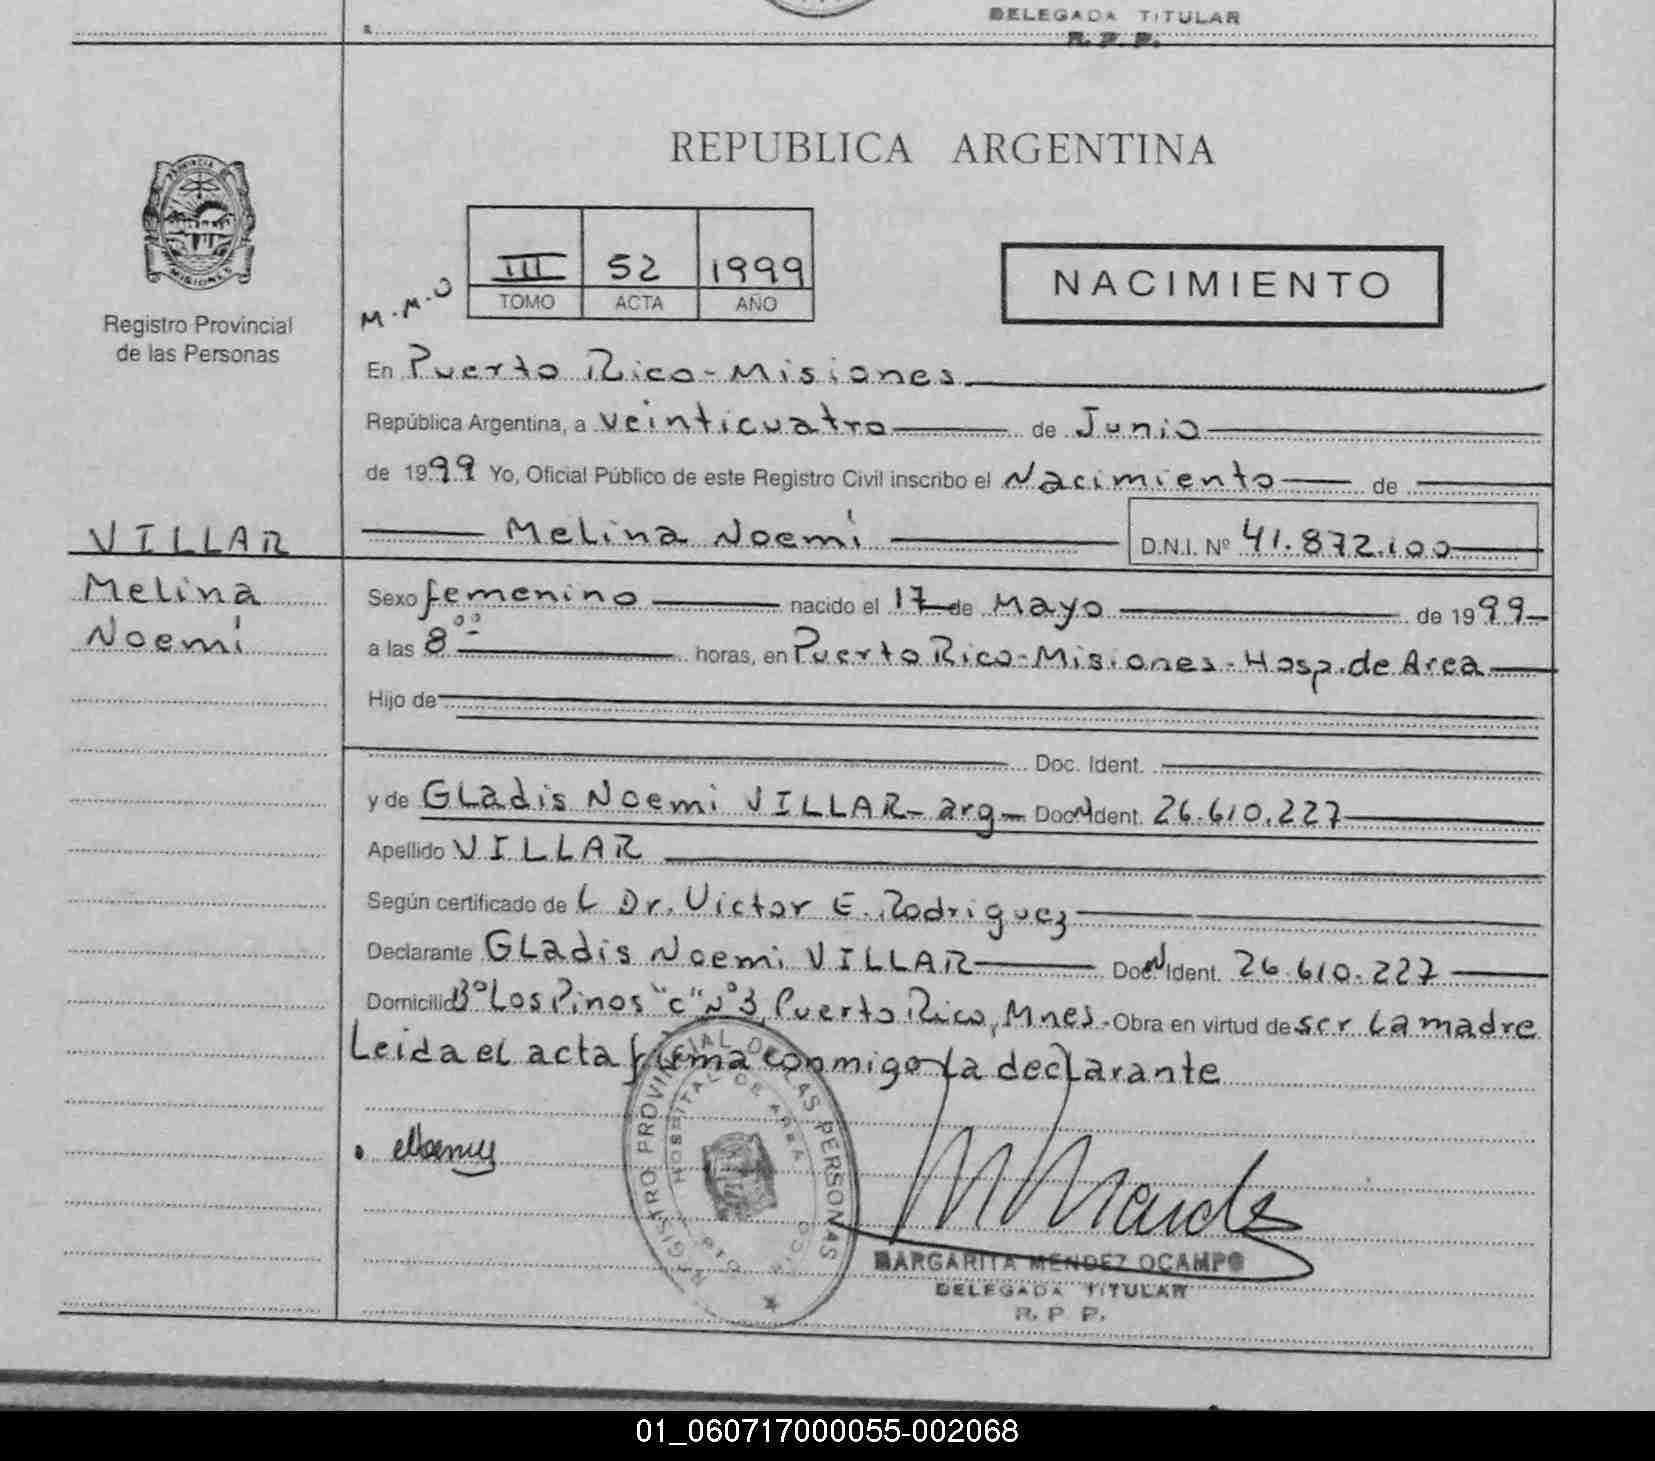 DELEGADA TITULAR
R. P. P.
REPUBLICA ARGENTINA
PROVINCIA
MISIONES
Registro Provincial
de las Personas
III 52 1999
TOMO ACTA AÑO
M.M.O
NACIMIENTO
En Puerto Rico - Misiones
República Argentina, a veinticuatro de Junio
de 1999 Yo, Oficial Público de este Registro Civil inscribo el Nacimiento de
VILLAR
Melina
Noemí
Melina Noemí D.N.I. Nº 41.872.100
Sexo femenino nacido el 17 de Mayo de 1999
a las 8 00 horas, en Puerto Rico - Misiones - Hosp. de Area
Hijo de
Doc. Ident.
y de Gladis Noemi VILLAR - arg - Doc N Ident. 26.610.227
Apellido VILLAR
Según certificado de L Dr. Victor E. Rodriguez
Declarante Gladis Noemi VILLAR Doc N Ident. 26.610.227
Domicilio Bº Los Pinos "C" Nº 3, Puerto Rico, Mnes. Obra en virtud de ser la madre
Leida el acta firma conmigo la declarante
REGISTRO PROVINCIAL DE LAS PERSONAS
HOSPITAL DE AREA
MARGARITA MENDEZ OCAMPO
DELEGADA TITULAR
R. P. P.
01_060717000055-002068